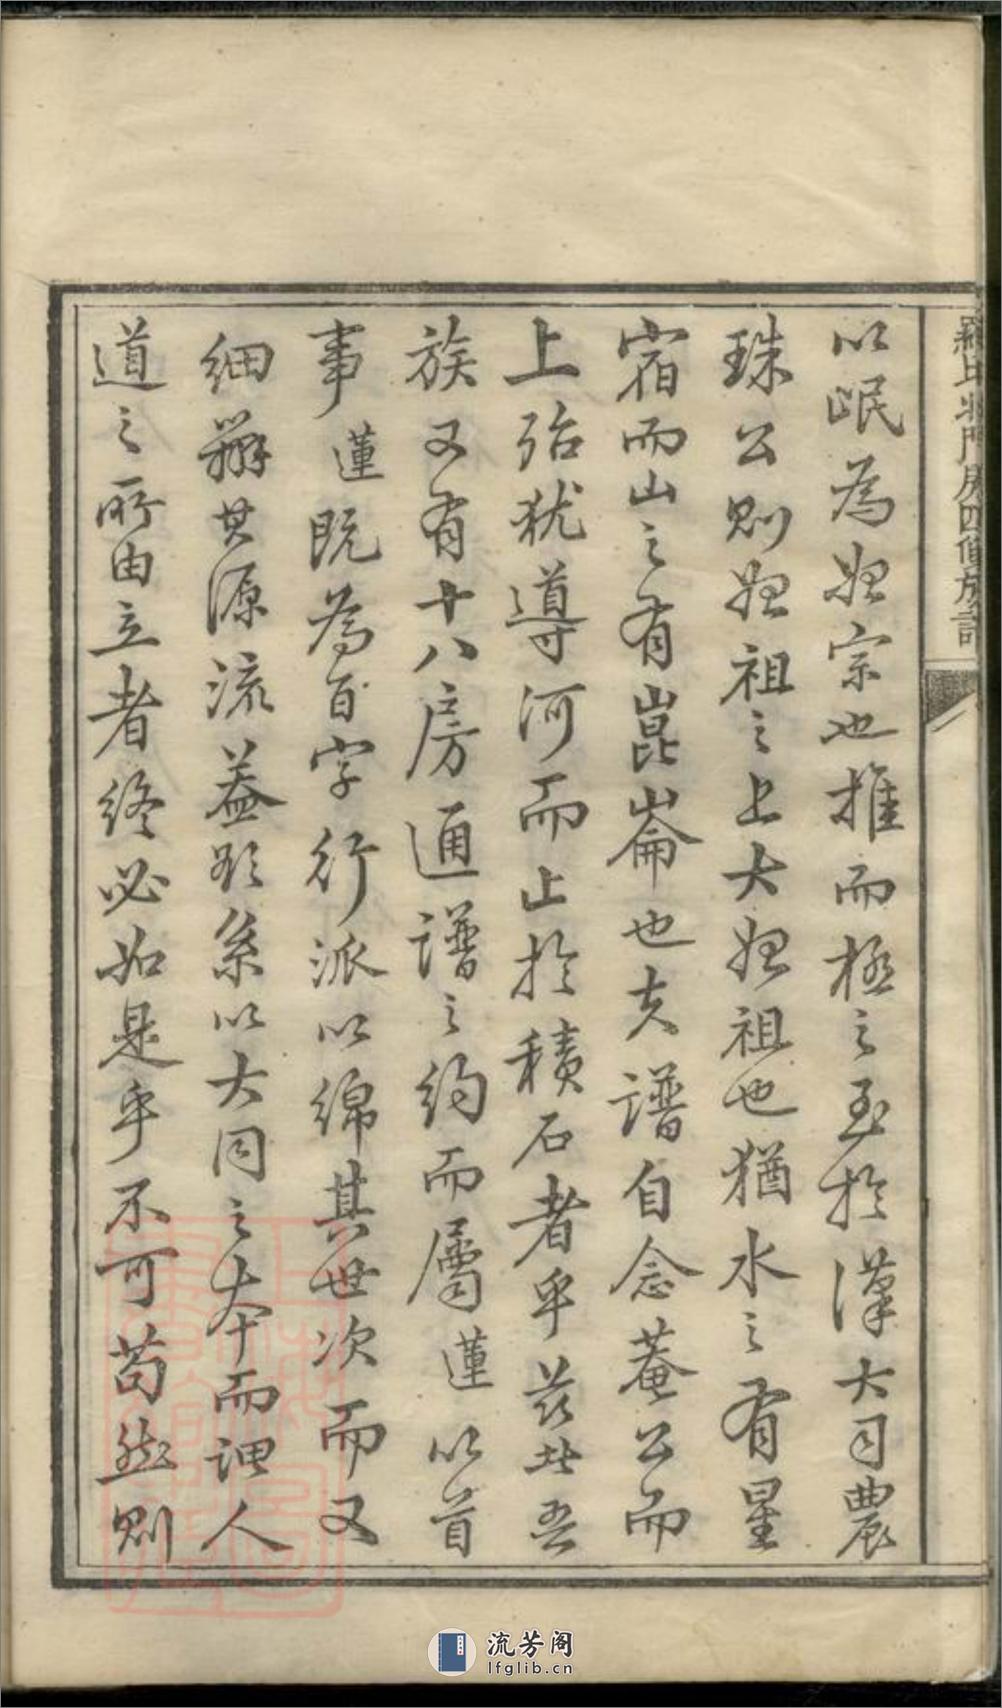 以岷為始宗也推而極之至於漢大司農
珠公則始祖之上大始祖也猶水之有星
宿而山之有崑崙也夫譜自念菴公而
上殆猶導河而止於積石者乎茲吾
族又有十八房通譜之約而屬蓮以首
事蓮既為百字行派以綿其世次而又
細辨其源流蓋欲系以大同之本而謂人
道之所由立者終必如是乎不可苟然則
羅氏 門房四修族譜
流芳阁
lfglib.cn